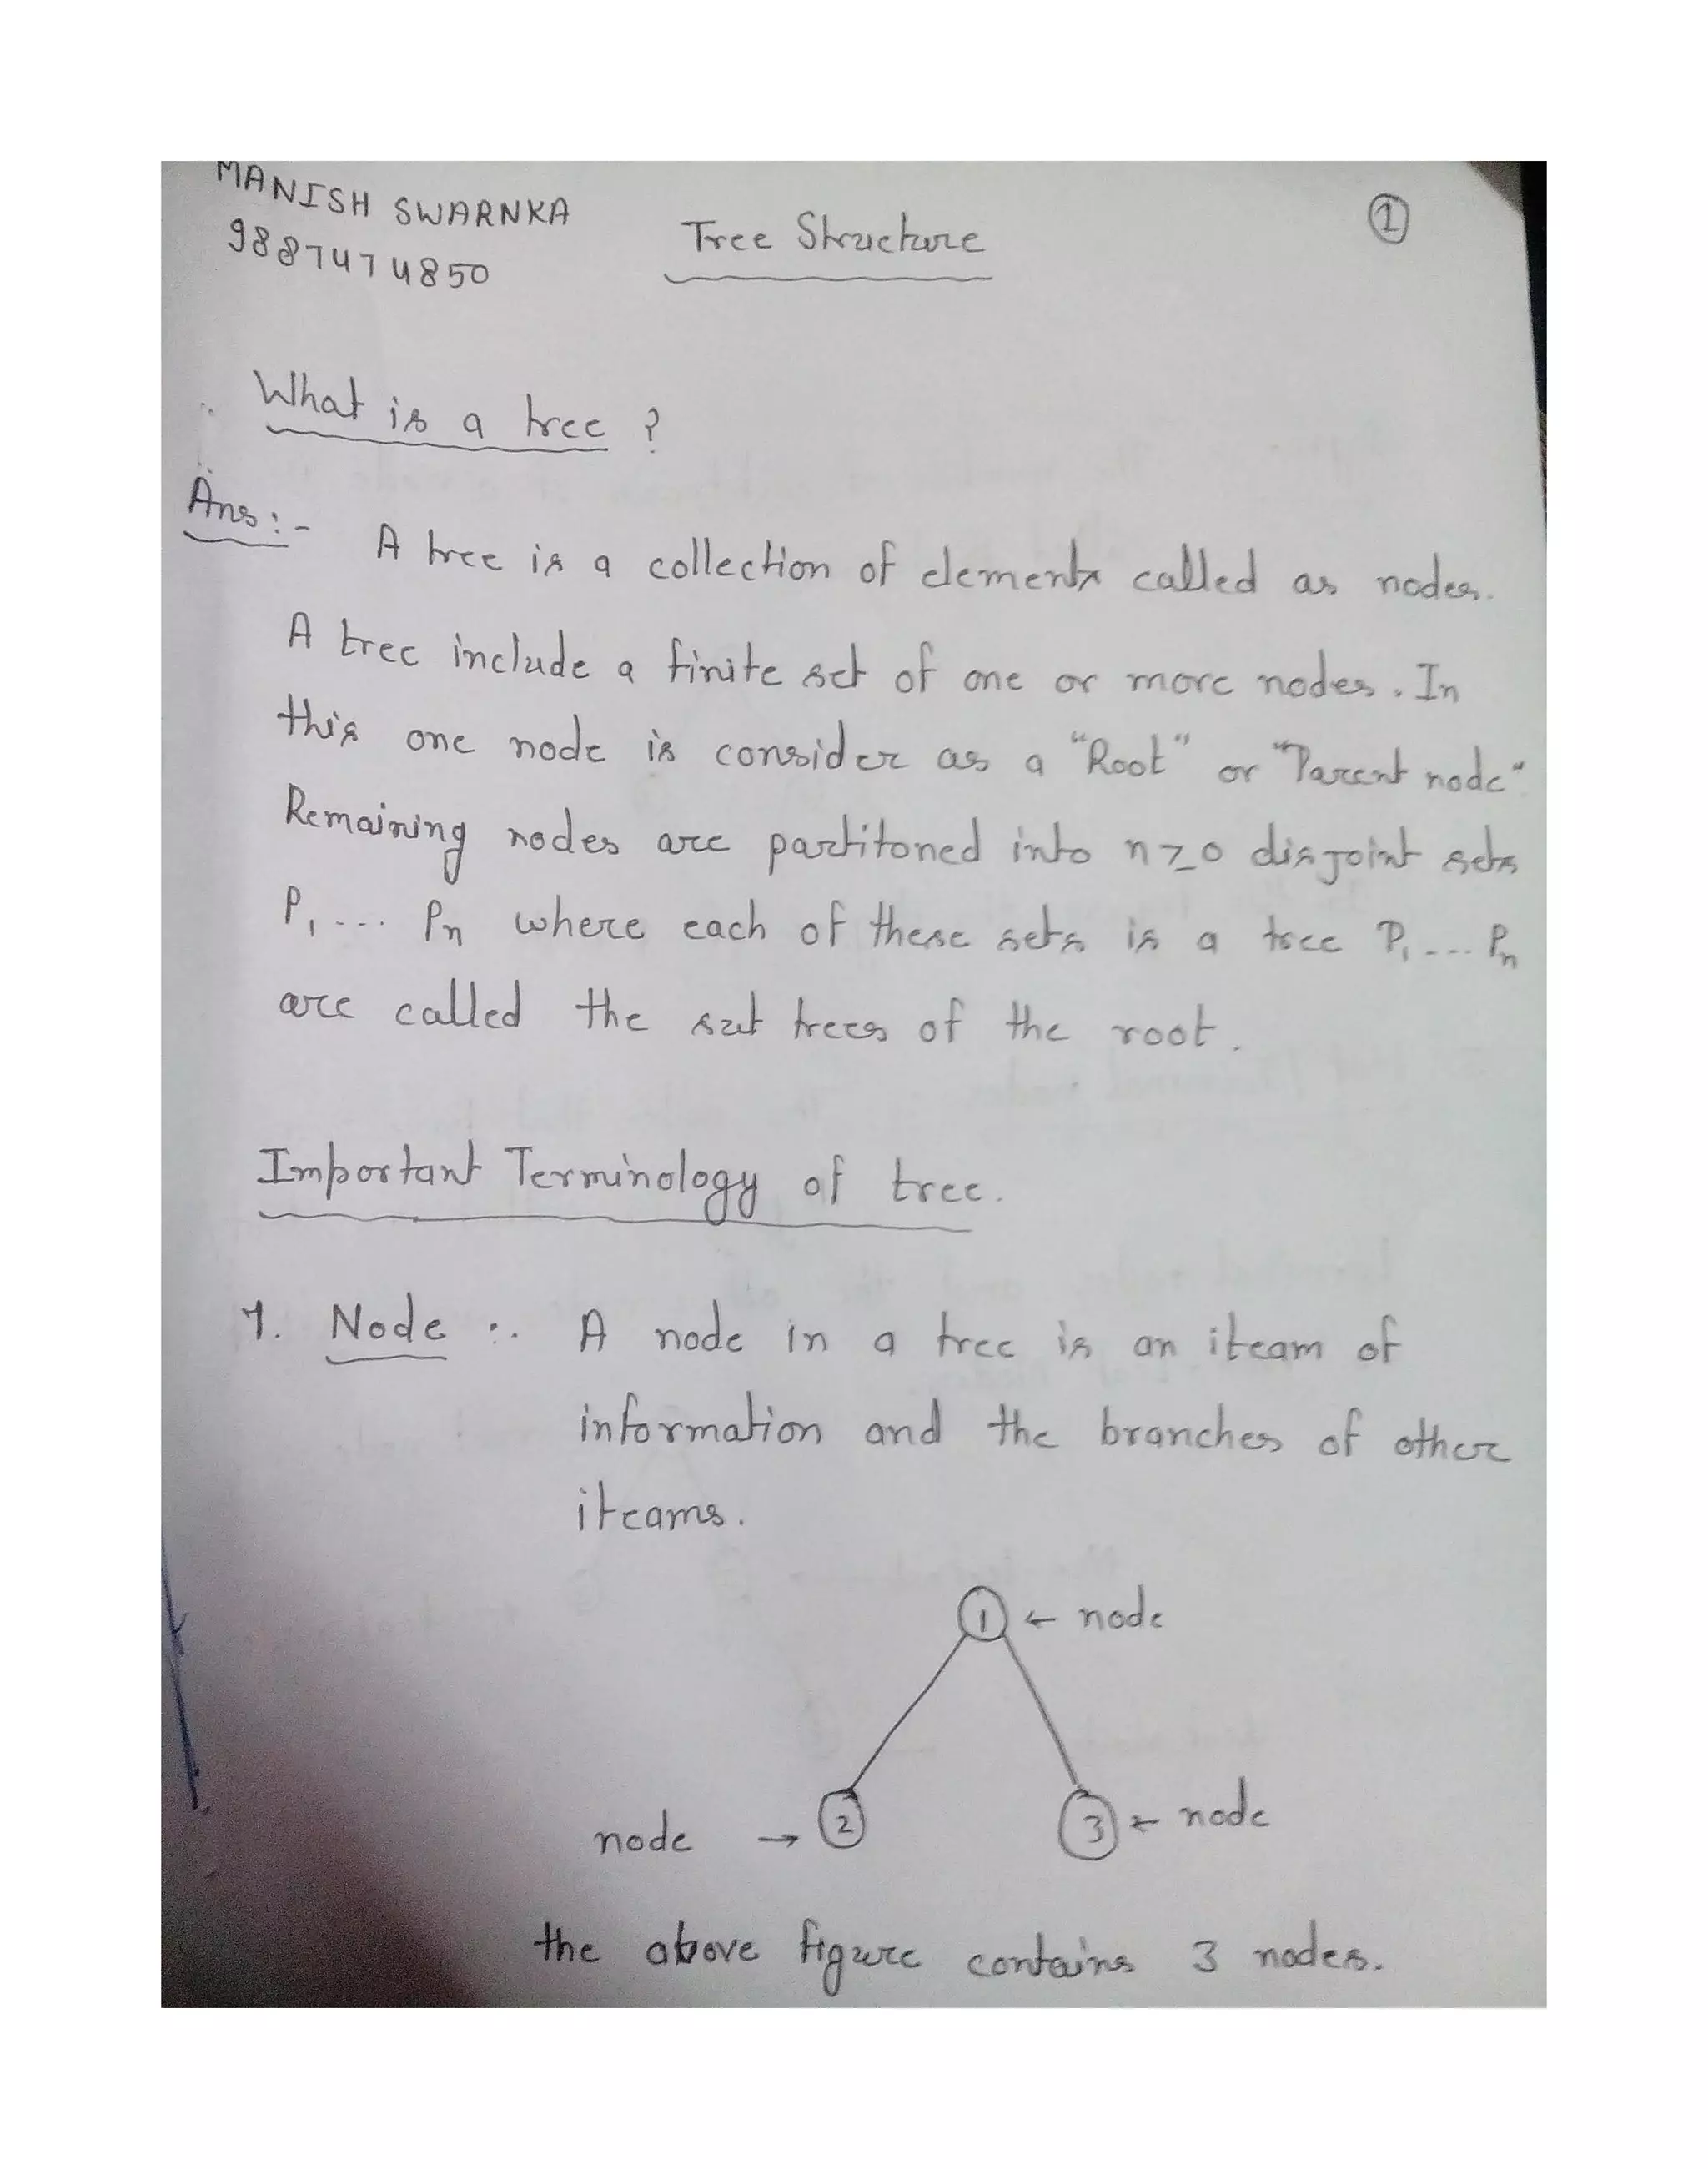 MANISH SWARNKA
9887474850
Tree Structure
1
What is a tree ?
Ans:- A tree is a collection of elements called as nodes.
A tree include a finite set of one or more nodes. In
this one node is consider as a "Root" or "Parent node"
Remaining nodes are partitoned into n≥0 disjoint sets
P1 ... Pn where each of these sets is a tree P1 ... Pn
are called the sut trees of the root.
Important Terminology of tree.
1. Node :. A node in a tree is an iteam of
information and the branches of other
iteams.
1 ← node
node → 2 3 ← node
the above figure contains 3 nodes.